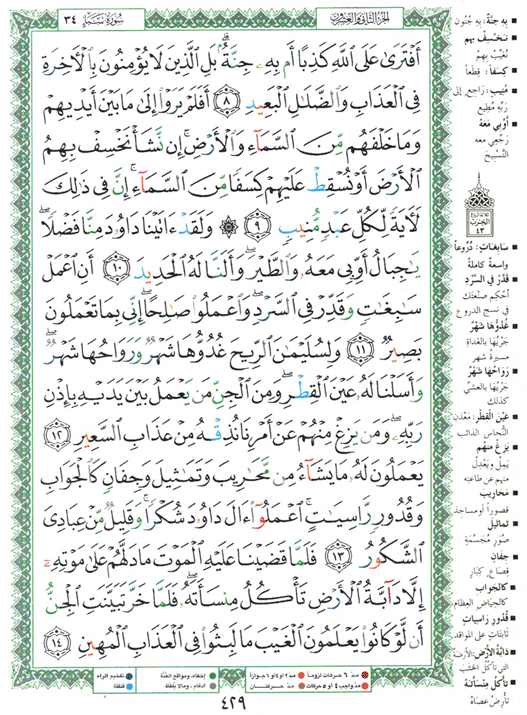 سُورَةُ سَبَإٍ ٣٤
الجزء الثاني والعشرون
أَفْتَرَىٰ عَلَى ٱللَّهِ كَذِبًا أَم بِهِۦ جِنَّةٌۢ ۗ بَلِ ٱلَّذِينَ لَا يُؤْمِنُونَ بِٱلْأَخِرَةِ
فِى ٱلْعَذَابِ وَٱلضَّلَٰلِ ٱلْبَعِيدِ ٨ أَفَلَمْ يَرَوْا۟ إِلَىٰ مَا بَيْنَ أَيْدِيهِمْ
وَمَا خَلْفَهُم مِّنَ ٱلسَّمَآءِ وَٱلْأَرْضِ ۚ إِن نَّشَأْ نَخْسِفْ بِهِمُ
ٱلْأَرْضَ أَوْ نُسْقِطْ عَلَيْهِمْ كِسَفًا مِّنَ ٱلسَّمَآءِ ۚ إِنَّ فِى ذَٰلِكَ
لَأَيَةً لِّكُلِّ عَبْدٍ مُّنِيبٍ ٩ ۞ وَلَقَدْ ءَاتَيْنَا دَاوُۥدَ مِنَّا فَضْلًا ۖ
يَٰجِبَالُ أَوِّبِى مَعَهُۥ وَٱلطَّيْرَ ۖ وَأَلَنَّا لَهُ ٱلْحَدِيدَ ١٠ أَنِ ٱعْمَلْ
سَٰبِغَٰتٍ وَقَدِّرْ فِى ٱلسَّرْدِ ۖ وَٱعْمَلُوا۟ صَٰلِحًا ۖ إِنِّى بِمَا تَعْمَلُونَ
بَصِيرٌ ١١ وَلِسُلَيْمَٰنَ ٱلرِّيحَ غُدُوُّهَا شَهْرٌ وَرَوَاحُهَا شَهْرٌ ۖ
وَأَسَلْنَا لَهُۥ عَيْنَ ٱلْقِطْرِ ۖ وَمِنَ ٱلْجِنِّ مَن يَعْمَلُ بَيْنَ يَدَيْهِ بِإِذْنِ
رَبِّهِۦ ۖ وَمَن يَزِغْ مِنْهُمْ عَنْ أَمْرِنَا نُذِقْهُ مِنْ عَذَابِ ٱلسَّعِيرِ ١٢
يَعْمَلُونَ لَهُۥ مَا يَشَآءُ مِن مَّحَٰرِيبَ وَتَمَٰثِيلَ وَجِفَانٍ كَٱلْجَوَابِ
وَقُدُورٍ رَّاسِيَٰتٍ ۚ ٱعْمَلُوٓا۟ ءَالَ دَاوُۥدَ شُكْرًا ۚ وَقَلِيلٌ مِّنْ عِبَادِىَ
ٱلشَّكُورُ ١٣ فَلَمَّا قَضَيْنَا عَلَيْهِ ٱلْمَوْتَ مَا دَلَّهُمْ عَلَىٰ مَوْتِهِۦٓ
إِلَّا دَآبَّةُ ٱلْأَرْضِ تَأْكُلُ مِنسَأَتَهُۥ ۖ فَلَمَّا خَرَّ تَبَيَّنَتِ ٱلْجِنُّ
أَن لَّوْ كَانُوا۟ يَعْلَمُونَ ٱلْغَيْبَ مَا لَبِثُوا۟ فِى ٱلْعَذَابِ ٱلْمُهِينِ ١٤
بِهِ جِنَّةٌ: بِهِ جُنُون
نَخْسِفْ بِهِم
نُغيّب بِهم
كِسَفًا: قِطَعاً
مُنِيبٍ: راجع إلى
ربّه مُطيع
أَوِّبِي مَعَهُ
رَجّعي معه
التّسبيح
الحزب
٤٣
سَابِغَاتٍ: دُرُوعاً
واسعةً كاملةً
قَدِّرْ فِي السَّرْدِ
أحْكِم صنعتَك
في نسج الدروع
غُدُوُّهَا شَهْرٌ
جَرْيُها بالغداة
مسيرة شهر
رَوَاحُهَا شَهْرٌ
جَرْيُها بالعشيّ
كذلك
عَيْنَ الْقِطْرِ: مَعْدِن
النُّحاس الذائب
يَزِغْ مِنْهُم
يَمِلْ ويَعْدِل
منهم عن طاعتِه
مَحَارِيبَ
قصورٍ أو مساجد
تَمَاثِيلَ
صُوَرٍ مُجَسَّمة
جِفَانٍ
قِصَاعٍ كِبار
كَالْجَوَابِ
كالحياض العظام
قُدُورٍ رَاسِيَاتٍ
ثابتات على المواقد
دَابَّةُ الْأَرْضِ: الأرَضة
التي تأكل الخشب
تَأْكُلُ مِنْسَأَتَهُ
تأرِضُ عصاه
مدّ ٦ حركات لزوماً
مدّ ٢ أو ٤ أو ٦ جوازاً
إخفاء، ومواقع الغُنَّة
تفخيم الراء
مدّ واجب ٤ أو ٥ حركات
مدّ حركتان
ادغام، وما لا يُلفظ
قلقلة
٤٢٩